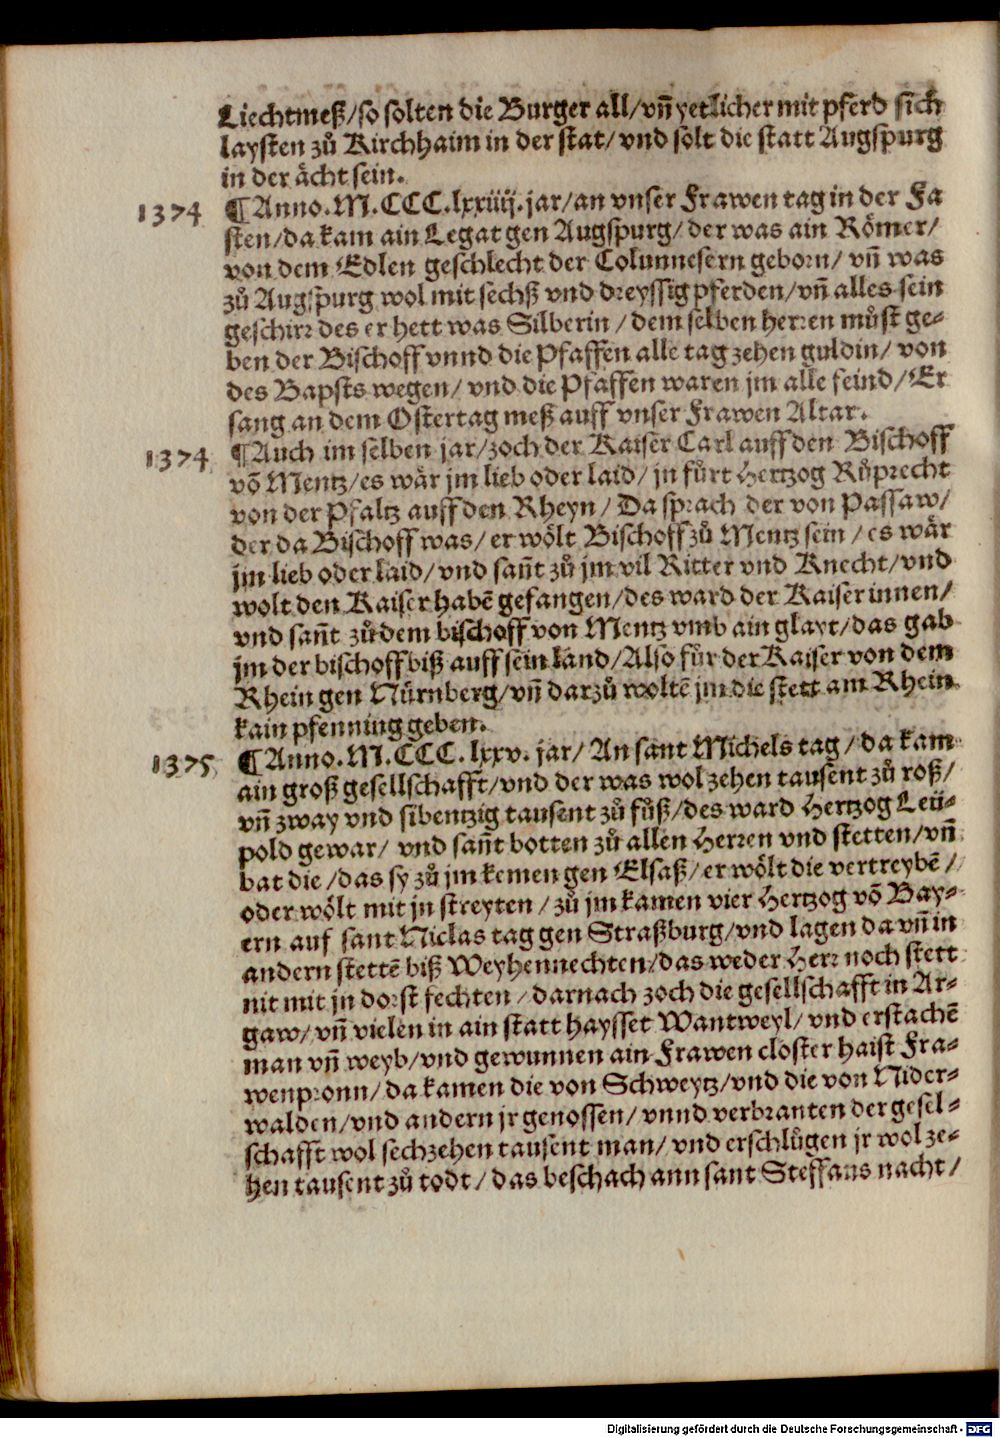 Liechtmeß/so solten die Burger all/vñ yetlicher mit pferd sich
laysten zů Kirchhaim in der stat/vnd solt die statt Augspurg
in der ächt sein.
1374 ¶Anno.M.CCC.lxxiiij.jar/an vnser Frawen tag in der Fa
sten/da kam ain Legat gen Augspurg/der was ain Römer/
von dem Edlen geschlecht der Colunnesern geborn/vñ was
zů Augspurg wol mit sechß vnd dreyssig pferden/vñ alles sein
geschirr des er hett was Silberin/dem selben herren můst ge-
ben der Bischoff vnnd die Pfaffen alle tag zehen guldin/von
des Bapsts wegen/vnd die Pfaffen waren jm alle feind/Er
sang an dem Ostertag meß auff vnser Frawen Altar.
1374 ¶Auch im selben jar/zoch der Kaiser Carl auff den Bischoff
võ Mentz/es wär jm lieb oder laid/jn fůrt Hertzog Růprecht
von der Pfaltz auff den Rheyn/Da sprach der von Passaw/
der da Bischoff was/er wölt Bischoff zů Mentz sein/es wär
jm lieb oder laid/vnd sañt zů jm vil Ritter vnd Knecht/vnd
wolt den Kaiser habẽ gefangen/des ward der Kaiser innen/
vnd sañt zů dem bischoff von Mentz vmb ain glayt/das gab
jm der bischoff biß auff sein land/Also fůr der Kaiser von dem
Rhein gen Nürnberg/vñ darzů woltẽ jm die stett am Rhein
kain pfenning geben.
1375 ¶Anno.M.CCC.lxxv.jar/An sant Michels tag/da kam
ain groß gesellschafft/vnd der was wol zehen tausent zů roß/
vñ zway vnd sibentzig tausent zů fůß/des ward Hertzog Leü-
pold gewar/vnd sañt botten zů allen Herren vnd stetten/vñ
bat die/das sy zů jm kemen gen Elsaß/er wölt die vertreybẽ/
oder wölt mit jn streyten/zů jm kamen vier Hertzog võ Bay-
ern auf sant Niclas tag gen Straßburg/vnd lagen da vñ in
andern stettẽ biß Weyhennechten/das weder Herr noch stett
nit mit jn dorst fechten/darnach zoch die gesellschafft in Ar-
gaw/vñ vielen in ain statt haysset Wantweyl/vnd erstachẽ
man vñ weyb/vnd gewunnen ain Frawen closter haist Fra-
wenpronn/da kamen die von Schweytz/vnd die von Nider-
walden/vnd andern jr genossen/vnnd verbranten der gesel-
schafft wol sechzehen tausent man/vnd erschlůgen jr wol ze-
hen tausent zů todt/das beschach ann sant Steffans nacht/
Digitalisierung gefördert durch die Deutsche Forschungsgemeinschaft - DFG